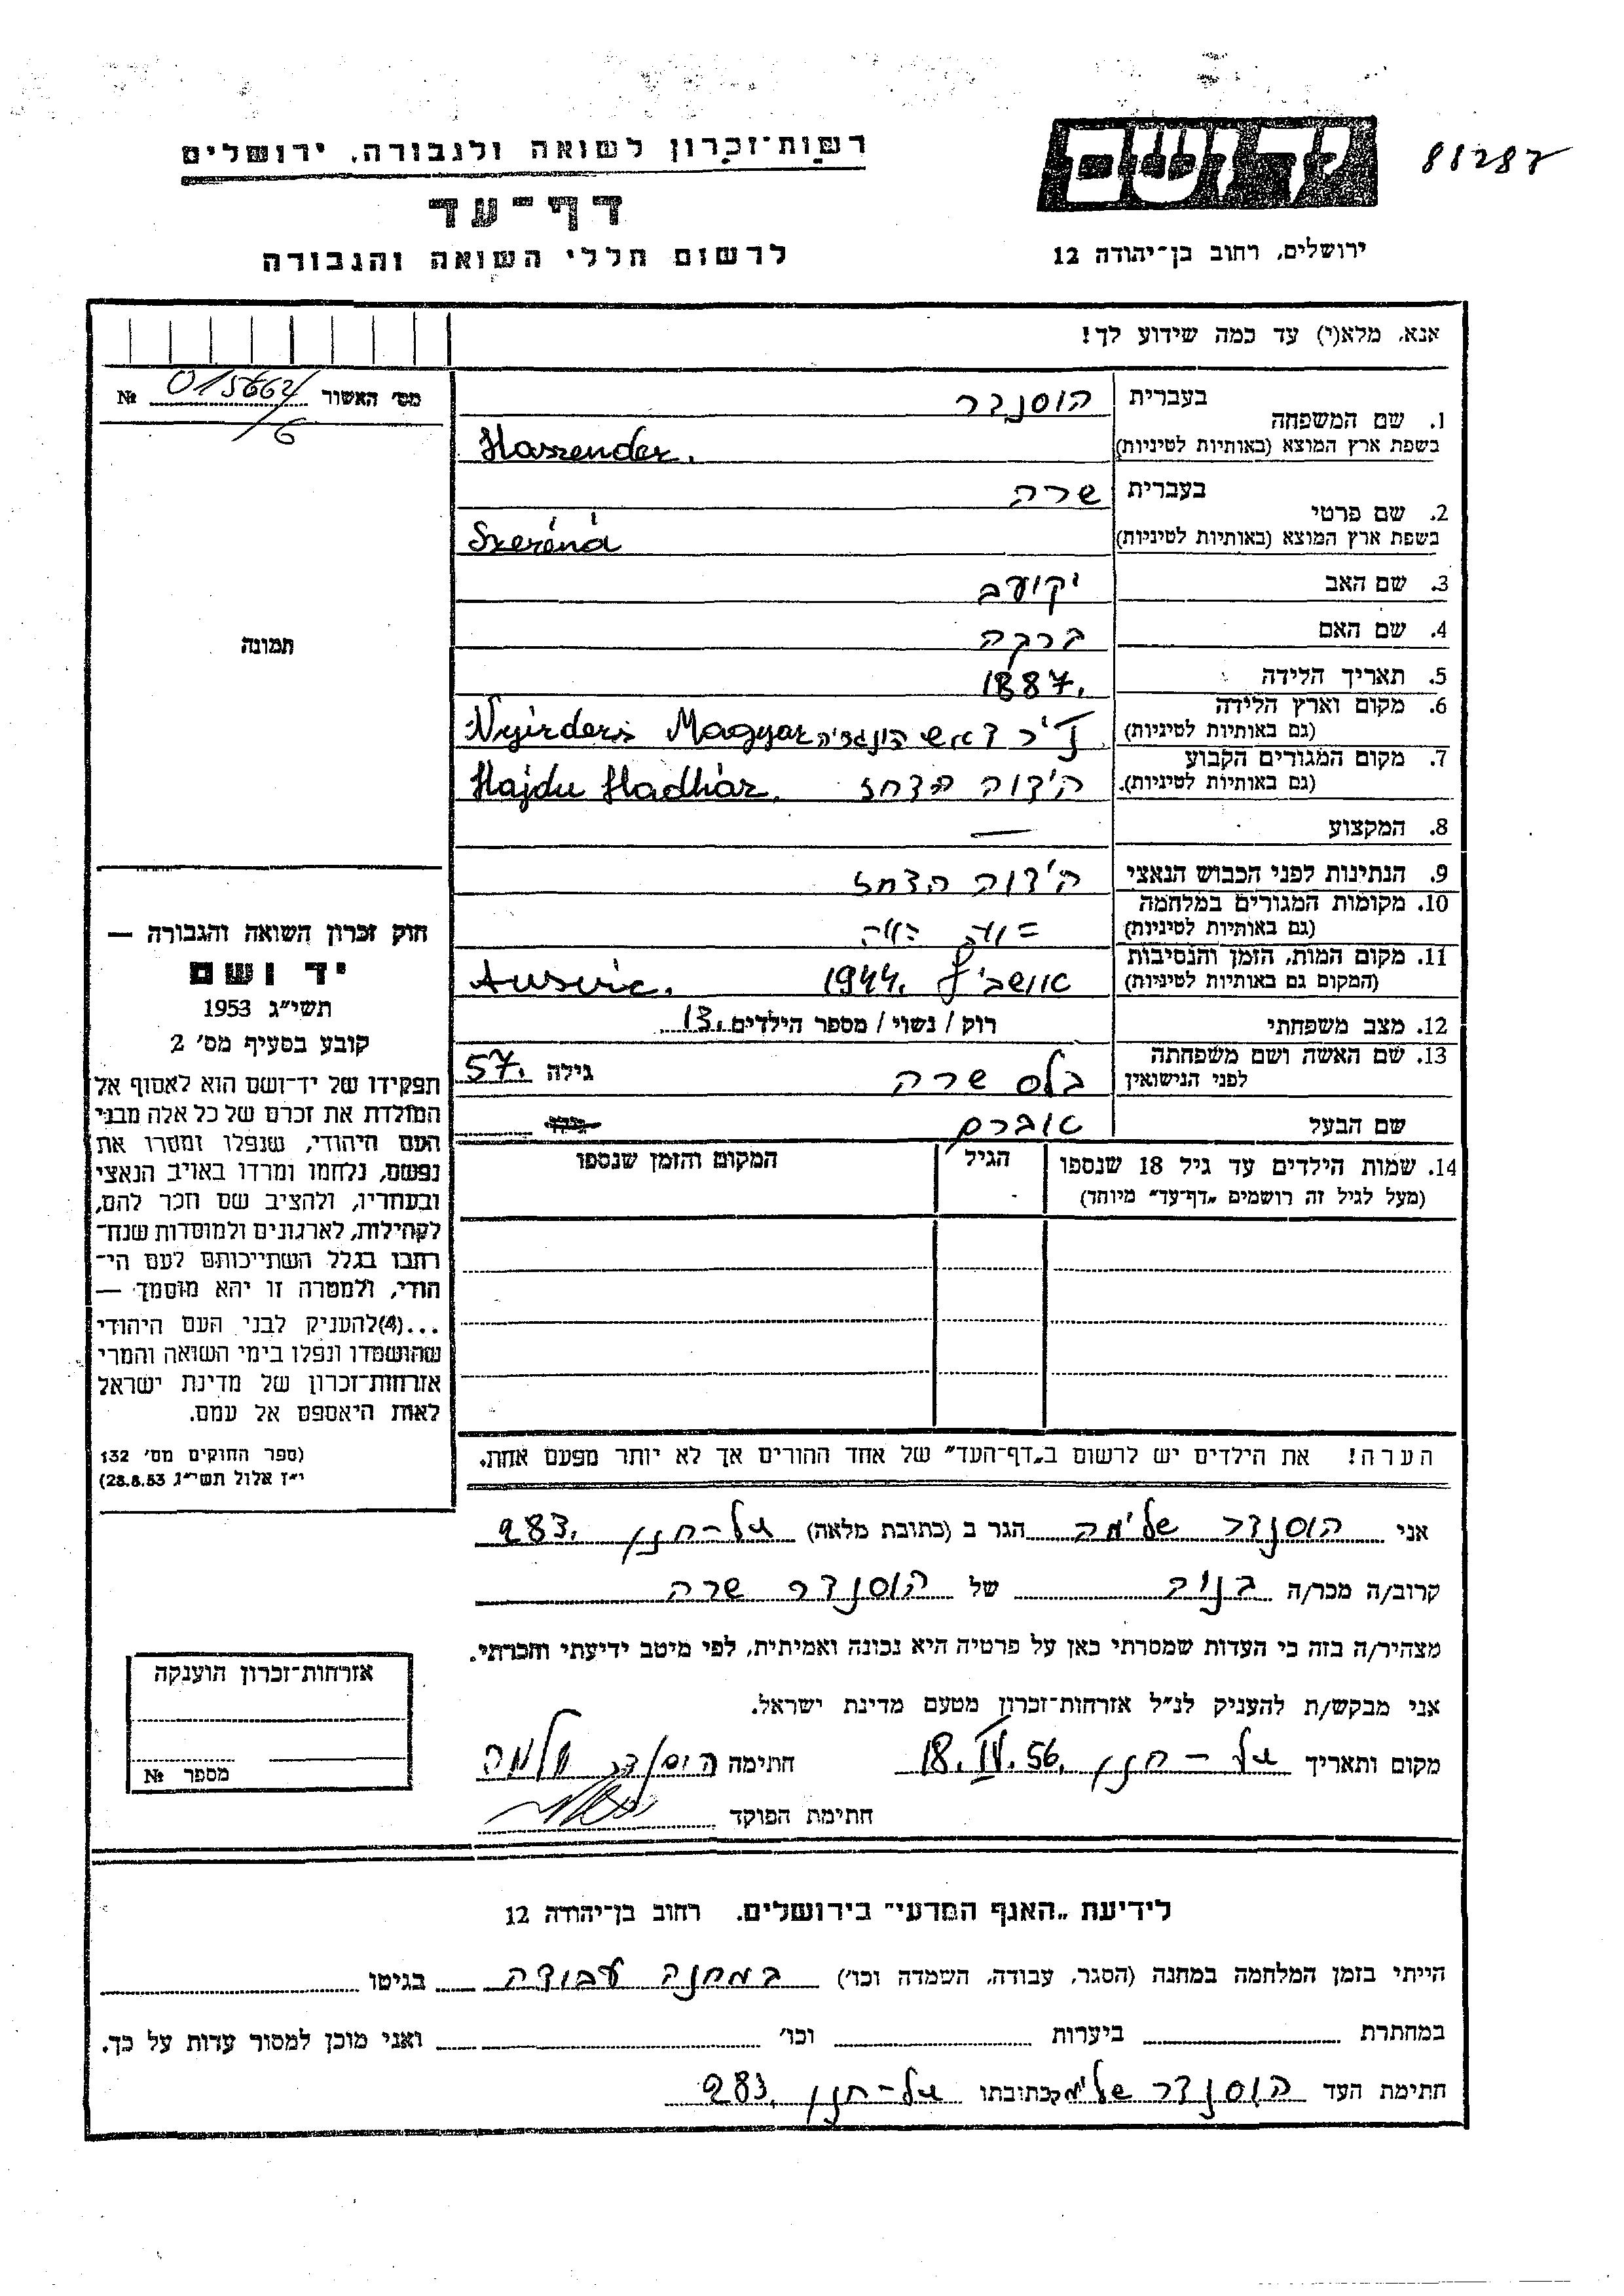 רשות־זכרון לשואה ולגבורה, ירושלים
דף־עד
לרשום חללי השואה והגבורה
יד ושם
ירושלים, רחוב בן־יהודה 12
אנא, מלא(י) עד כמה שידוע לך!
מס׳ האשור 015664 №
6
1. שם המשפחה
בעברית הוסנדר
בשפת ארץ המוצא (באותיות לטיניות) Haszender.
2. שם פרטי
בעברית שרה
בשפת ארץ המוצא (באותיות לטיניות) Szeréná
3. שם האב יקועב
4. שם האם ברכה
5. תאריך הלידה 1887.
6. מקום וארץ הלידה
(גם באותיות לטיניות) הונגריה Magyar
7. מקום המגורים הקבוע
(גם באותיות לטיניות). הידוה הדהז Hajdu Hadház.
8. המקצוע —
9. הנתינות לפני הכבוש הנאצי הידוה הדהז
10. מקומות המגורים במלחמה
(גם באותיות לטיניות)
11. מקום המות, הזמן והנסיבות
(המקום גם באותיות לטיניות) אושביץ 1944. Ausvic.
12. מצב משפחתי רוק / נשוי / מספר הילדים 13.
13. שם האשה ושם משפחתה
לפני הנישואין שרה גילה 57.
שם הבעל אברם
14. שמות הילדים עד גיל 18 שנספו
(מעל לגיל זה רושמים „דף־עד״ מיוחד)
הגיל
המקום והזמן שנספו
הערה! את הילדים יש לרשום ב„דף־העד״ של אחד ההורים אך לא יותר מפעם אחת.
תמונה
חוק זכרון השואה והגבורה —
יד ושם
תשי״ג 1953
קובע בסעיף מס׳ 2
תפקידו של יד־ושם הוא לאסוף אל
המולדת את זכרם של כל אלה מבני
העם היהודי, שנפלו ומסרו את
נפשם, נלחמו ומרדו באויב הנאצי
ובעוזריו, ולהציב שם וזכר להם,
לקהילות, לארגונים ולמוסדות שנח־
רבו בגלל השתייכותם לעם הי־
הודי, ולמטרה זו יהא מוסמך —
...(4)להעניק לבני העם היהודי
שהושמדו ונפלו בימי השואה והמרי
אזרחות־זכרון של מדינת ישראל
לאות היאספם אל עמם.
(ספר החוקים מס׳ 132
י״ז אלול תשי״ג 28.8.53)
אני הוסנדר שלימה הגר ב (כתובת מלאה) אל-חנן 283.
קרוב/ה מכר/ה של הוסנדר שרה
מצהיר/ה בזה כי העדות שמסרתי כאן על פרטיה היא נכונה ואמיתית, לפי מיטב ידיעתי והכרתי.
אני מבקש/ת להעניק לנ״ל אזרחות־זכרון מטעם מדינת ישראל.
מקום ותאריך אל-חנן 18. IV. 56. חתימה הוסנדר שלמה
חתימת הפוקד
אזרחות־זכרון הוענקה
מספר №
לידיעת „האגף המדעי״ בירושלים. רחוב בן־יהודה 12
הייתי בזמן המלחמה במחנה (הסגר, עבודה, השמדה וכו׳) במחנה עבודה בגיטו
במחתרת ביערות וכו׳ ואני מוכן למסור עדות על כך.
חתימת העד הוסנדר שלימה כתובתו אל-חנן 283.